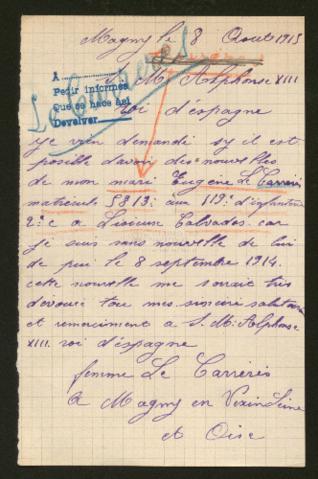 Magny le 8 Aout 1915
A
Pedir informes
Que se hace así
Devolver
S. M. Alphonse XIII
roi d'espagne
je vien demandé sy il est
posible d'avoir des nouvelles
de mon mari Eugène Le Carrérès
matricule 5813: au 119e d'infanterie
2e c a Lisieux Calvados. car
je suis sans nouvelle de lui
de pui le 8 septembre 1914.
cette nouvelle me serait très
devoué tou mes sincère salutation
et remerciment a S. M. Alphonse
XIII. roi d'espagne
femme Le Carrérès
a Magny en Vexin Seine
et Oise